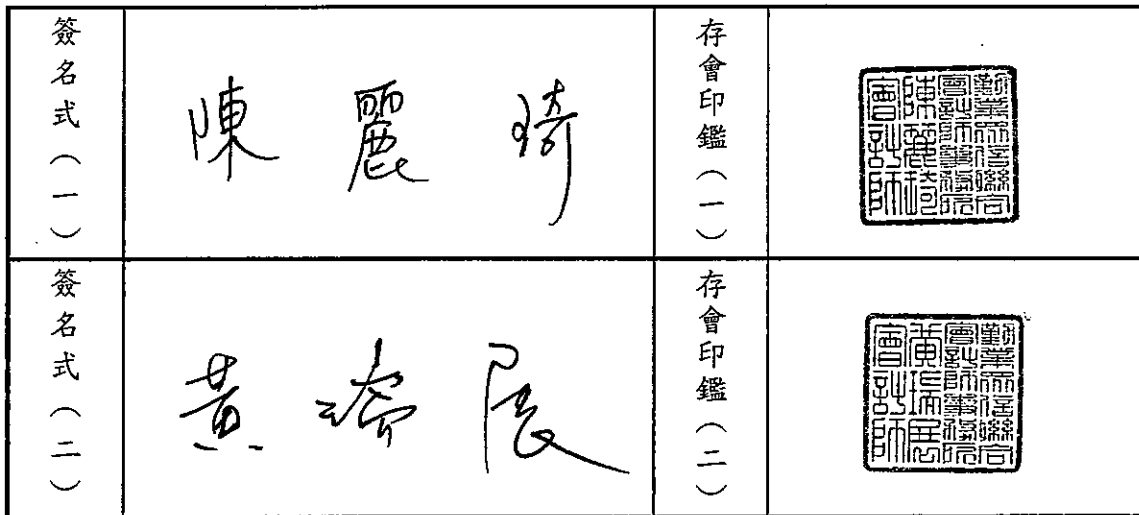 簽名式(一)
陳麗琦
存會印鑑(一)
勤業眾信聯合
會計師事務所
陳麗琦
會計師
簽名式(二)
黃瑞展
存會印鑑(二)
勤業眾信聯合
會計師事務所
黃瑞展
會計師